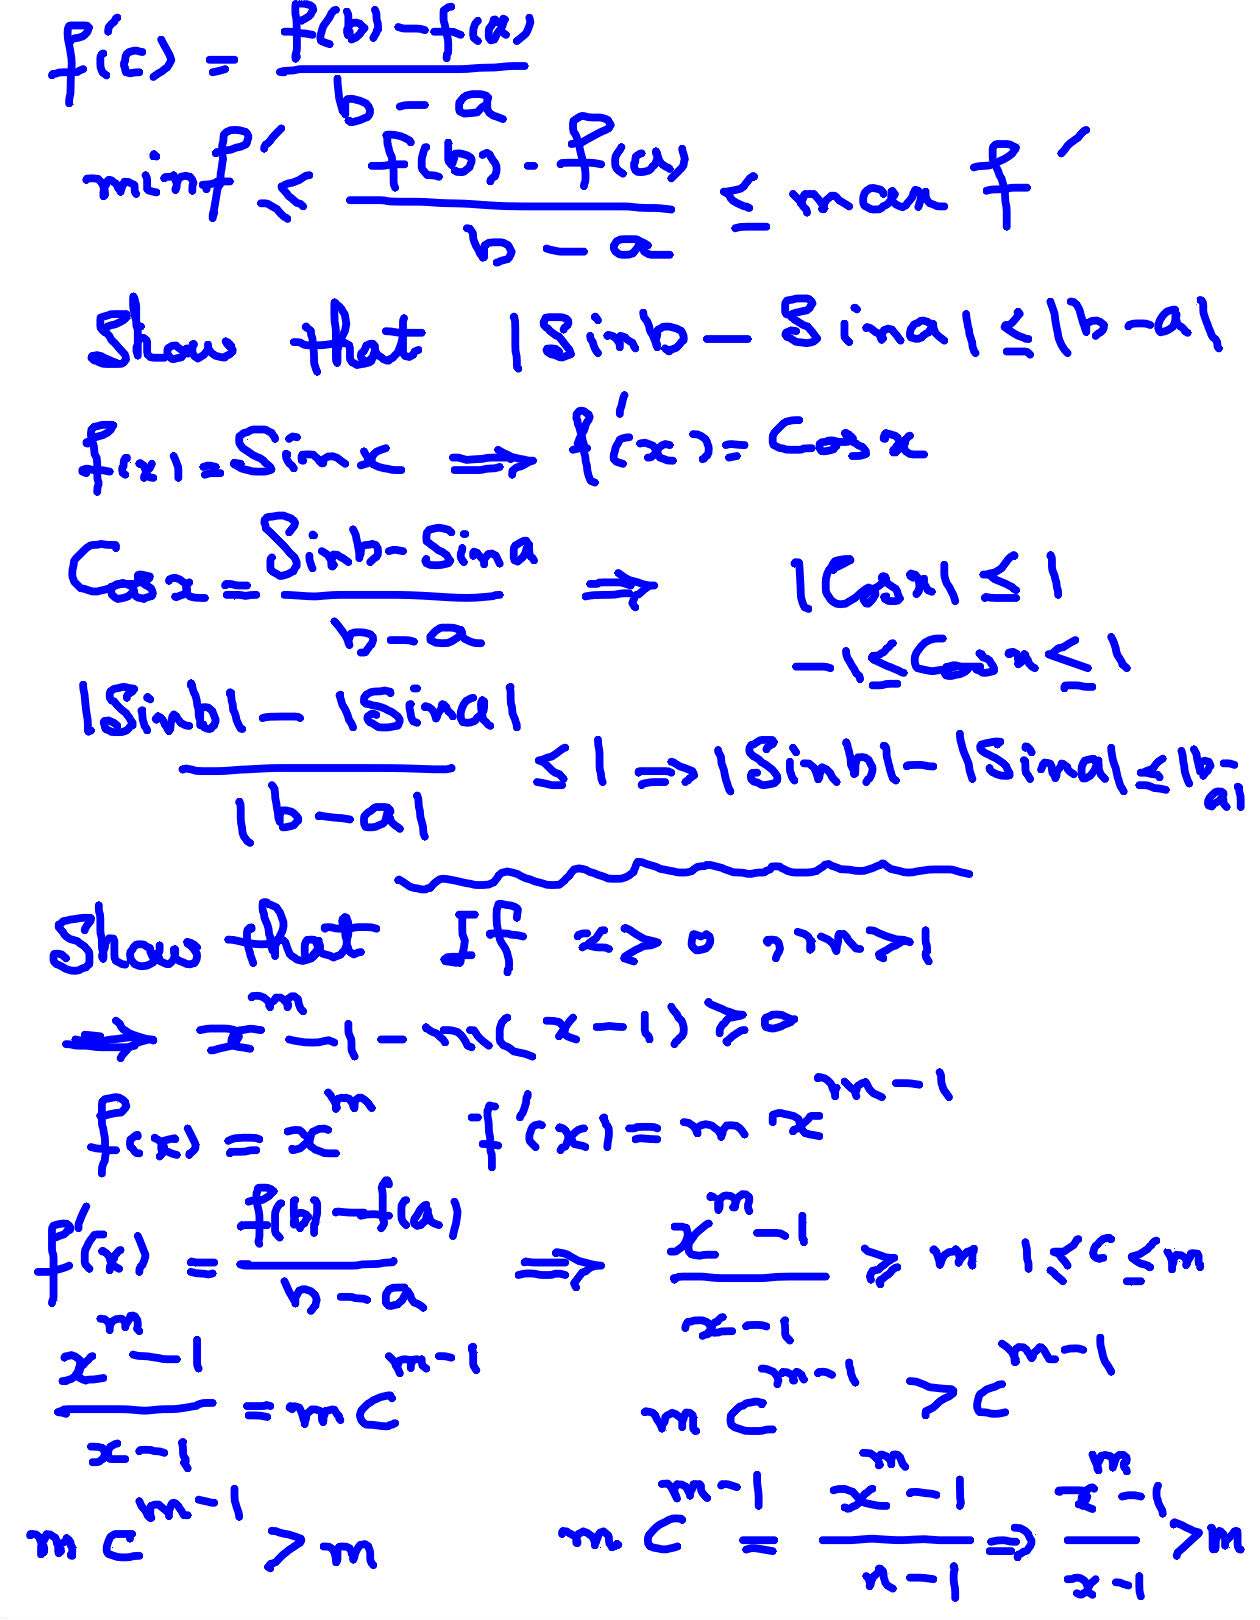 f'(c) = (f(b) - f(a)) / (b - a)
min f' ≤ (f(b) - f(a)) / (b - a) ≤ max f'
Show that |Sin b - Sin a| ≤ |b - a|
f(x) = Sin x ⇒ f'(x) = Cos x
Cos x = (Sin b - Sin a) / (b - a) ⇒ |Cos x| ≤ 1
-1 ≤ Cos x ≤ 1
(|Sin b| - |Sin a|) / |b - a| ≤ 1 ⇒ |Sin b| - |Sin a| ≤ |b - a|
Show that If x > 0 , m > 1
⇒ x^m - 1 - m(x - 1) ≥ 0
f(x) = x^m f'(x) = m x^(m-1)
f'(x) = (f(b) - f(a)) / (b - a) ⇒ (x^m - 1) / (x - 1) ≥ m 1 ≤ c ≤ m
(x^m - 1) / (x - 1) = m c^(m-1) m c^(m-1) > c^(m-1)
m c^(m-1) > m m c^(m-1) = (x^m - 1) / (n - 1) ⇒ (x^m - 1) / (x - 1) > m